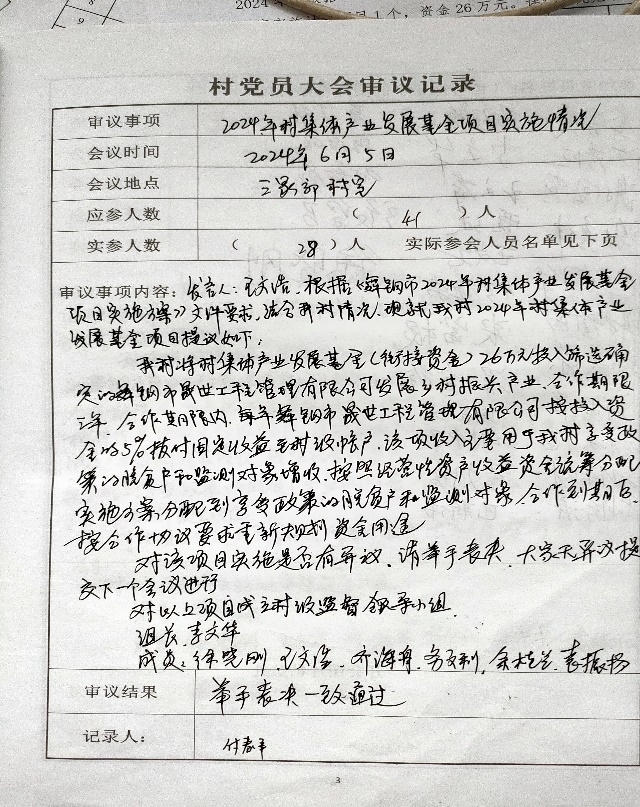 2024年
1个，资金26万元。
村党员大会审议记录
审议事项 2024年村集体产业发展基金项目实施情况
会议时间 2024年6月5日
会议地点 三家部村室
应参人数 （ 41 ）人
实参人数 （ 28 ）人 实际参会人员名单见下页
审议事项内容：发言人：王文浩、根据《舞钢市2024年村集体产业发展基金
项目实施方案》文件要求，结合我村情况，现就我村2024年村集体产业
发展基金项目提议如下：
我村将村集体产业发展基金（衔接资金）26万元投入筛选确
定的舞钢市晟世工程管理有限公司发展乡村振兴产业，合作期限
三年，合作期限内，每年舞钢市晟世工程管理有限公司按投入资
金的5%拨付固定收益至村级帐户，该项收入主要用于我村享受政
策的脱贫户和监测对象增收，按照经营性资产收益资金统筹分配
实施方案分配到享受政策的脱贫户和监测对象，合作到期后，
按合作协议要求重新规划资金用途
对该项目实施是否有异议，请举手表决，大家无异议提
交下一个会议进行
对以上项目成立村级监督领导小组
组长 李文华
成员：徐宪刚、王文浩、
审议结果 举手表决一致通过
记录人： 付春平
3